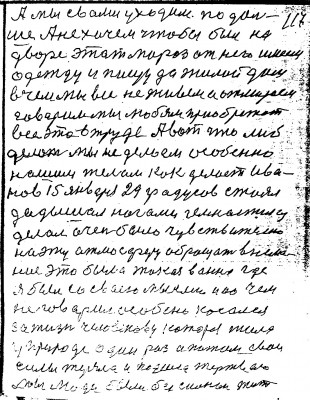 117
А мы с вами уходим. подаль-
ше А не хочем чтобы был на
дворе этат мароз от него имеем
одежду и пищу да жилой дом
в чем мы все не живем а
говорим мы любим приобретат
все эта в труде А вот что люб
делат мы не делаем особенно
нашим телам как делает Ива-
нов 15 января 29 градусов стоял
да дышал нагами гемнастику
делал очен было чувствително
на эту атмосферу обращат внема-
ние это была такая ванна где
я был со своею мыслею нао чем
не говарил особено касался
за жизн человеку котора жила
у природе один раз а патом свои
силы теряла и пошла
Люди были без